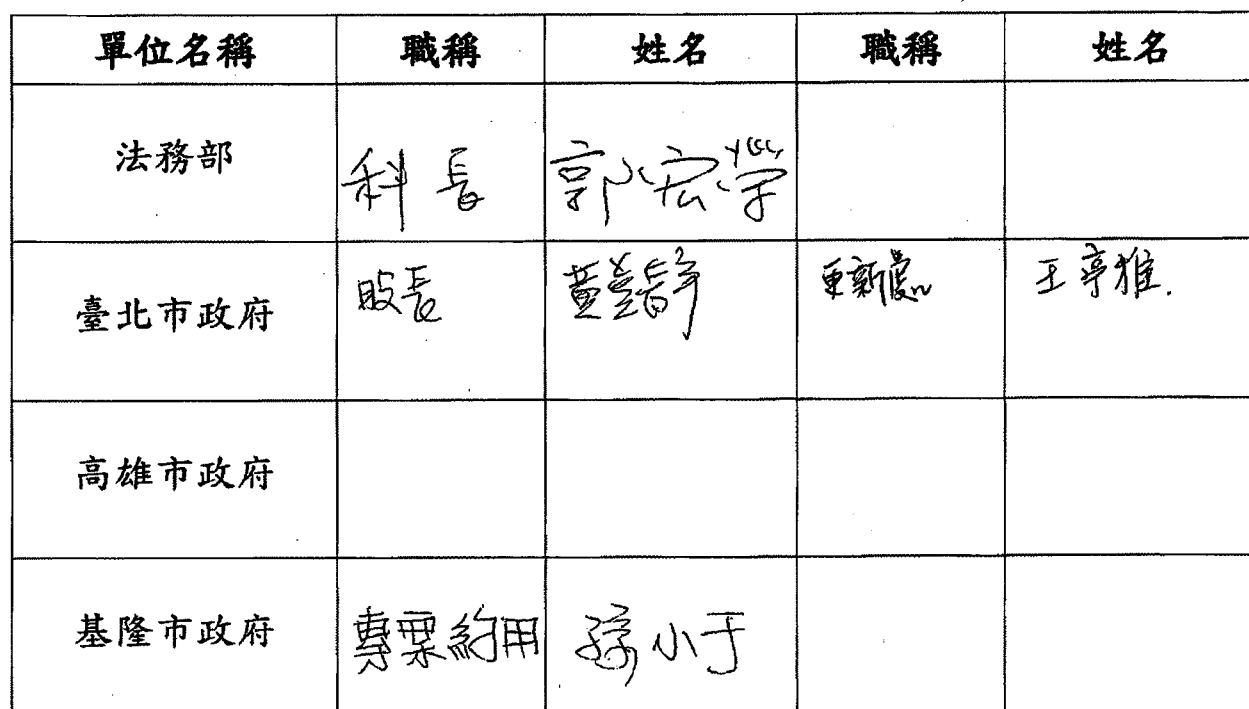 單位名稱 職稱 姓名 職稱 姓名
法務部 科長 郭宏榮
臺北市政府 股長 黃 靜 更新處 王亭雅.
高雄市政府
基隆市政府 專案約用 孫小于